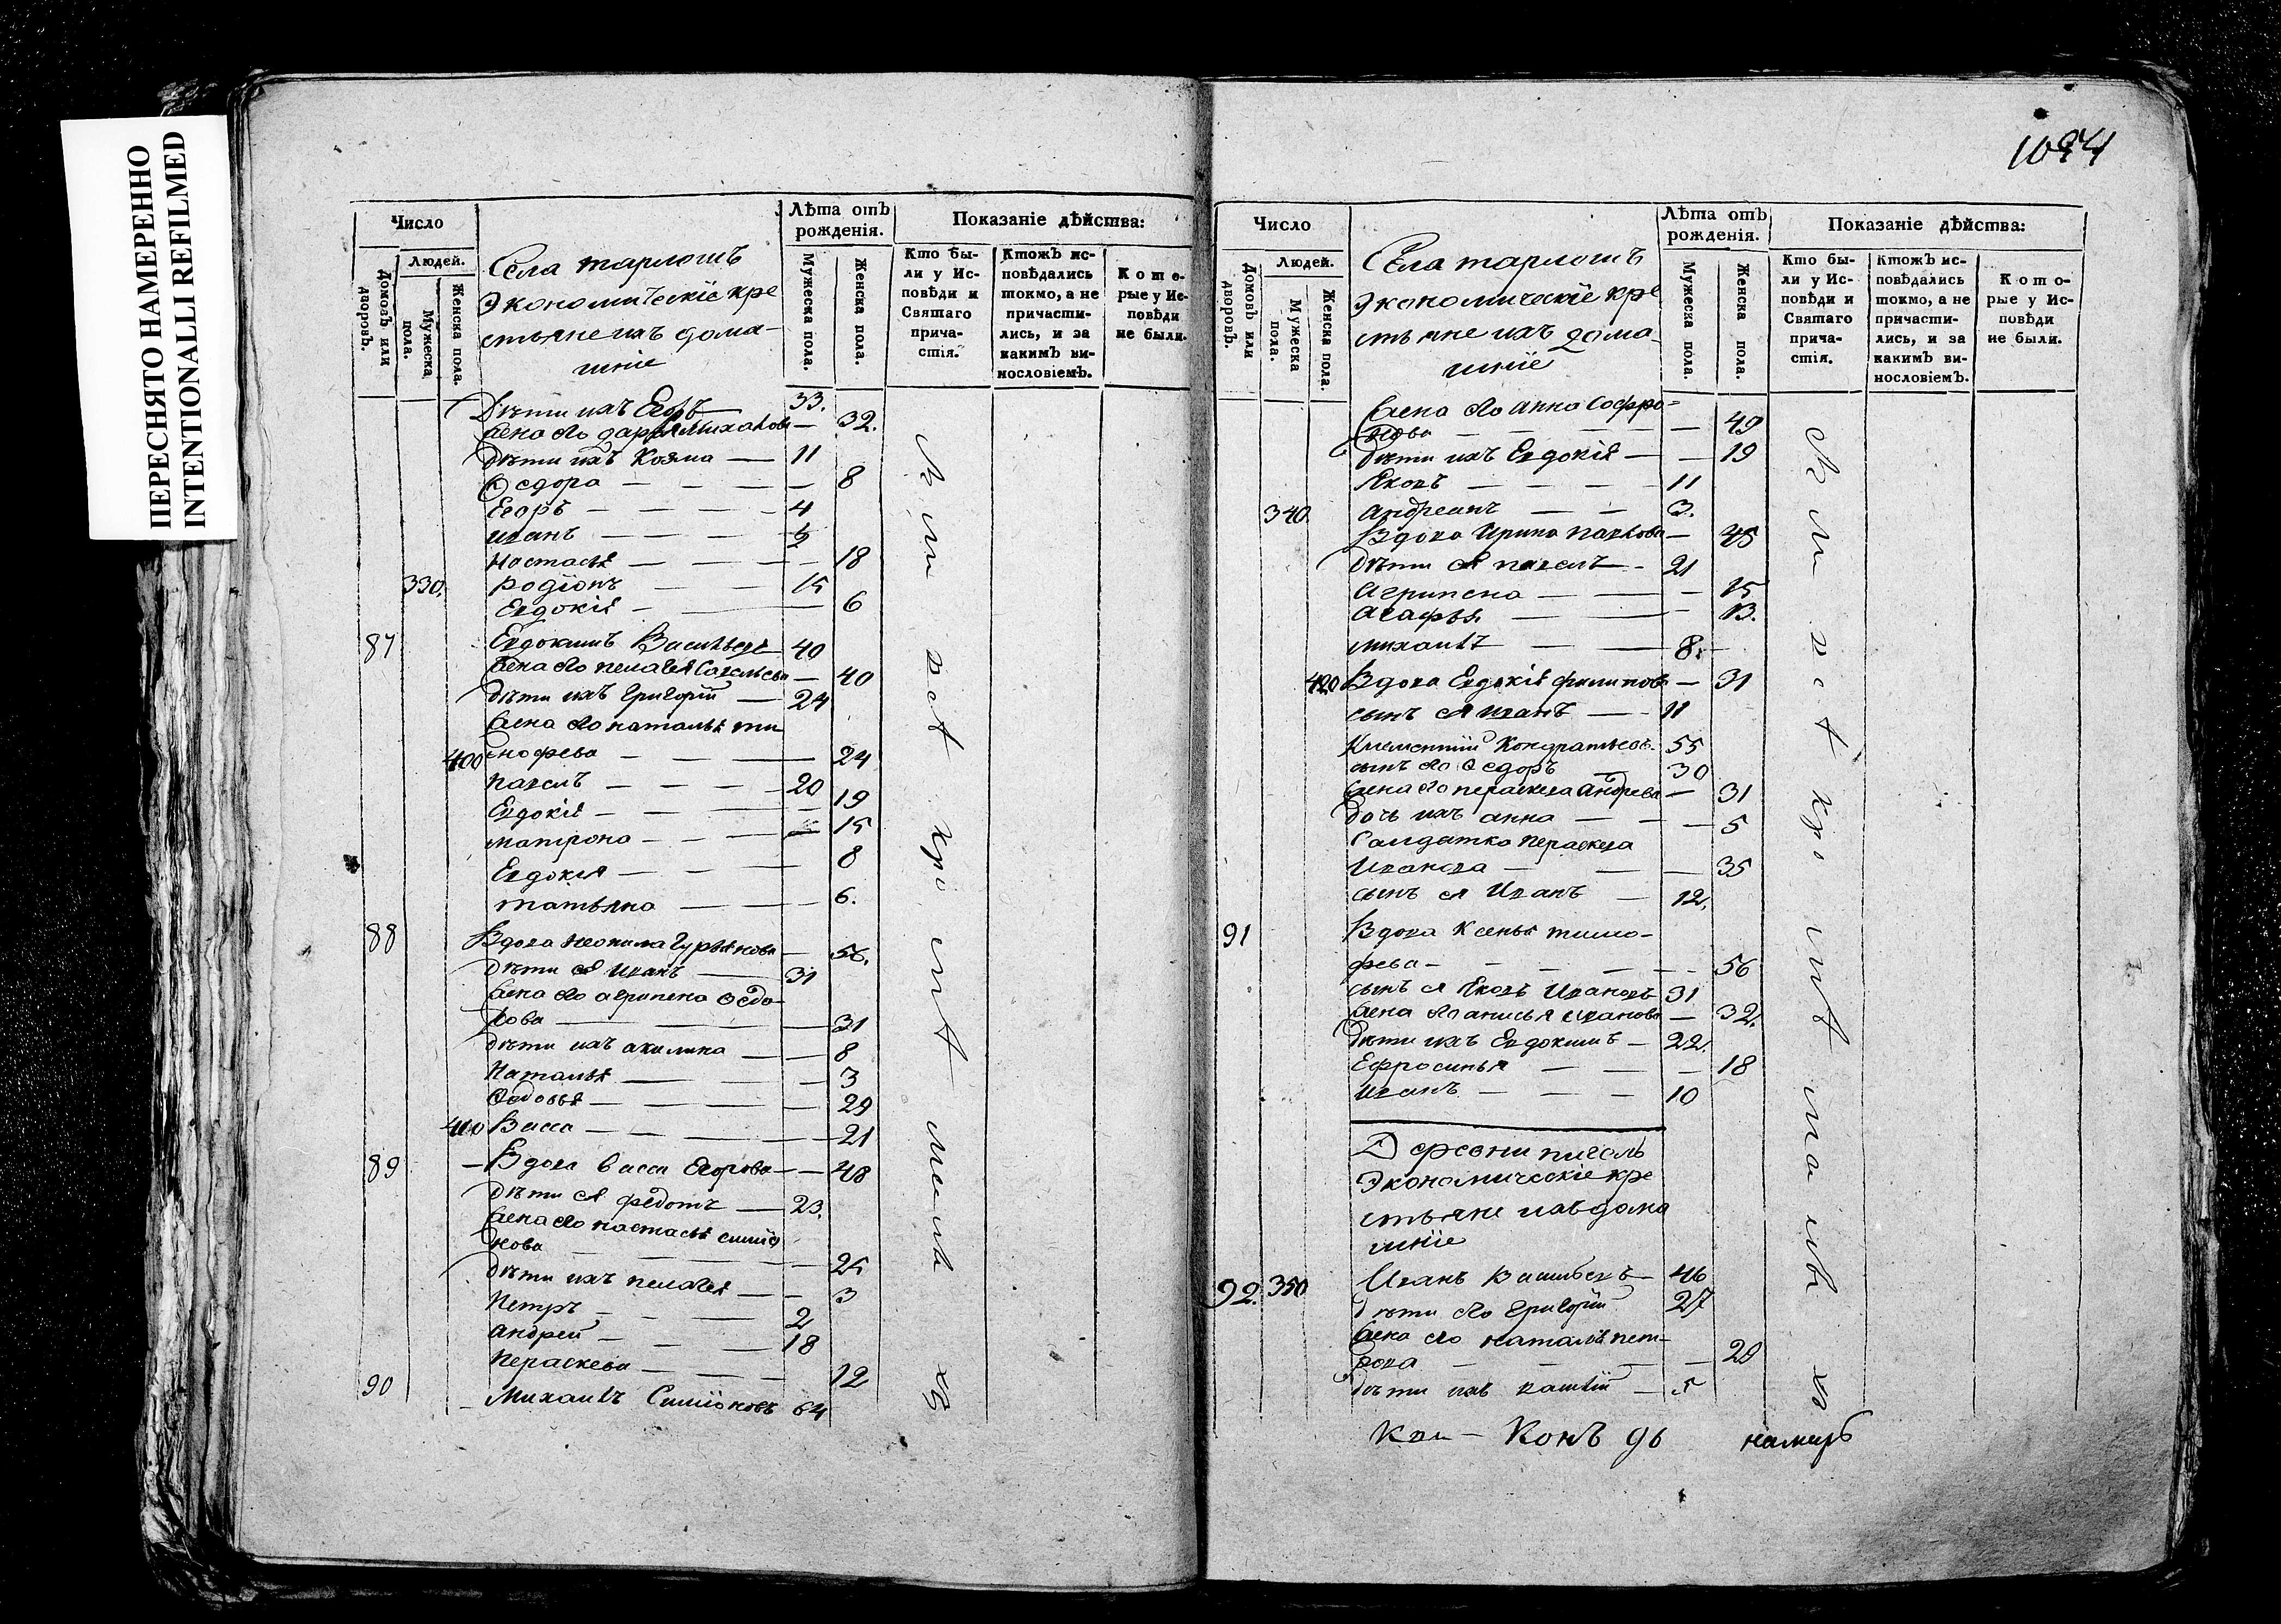 ПЕРЕСНЯТО НАМЕРЕННО
INTENTIONALLI REFILMED
Число
Людей.
Домовъ или дворовъ.
Мужеска пола.
Женска пола.
Села тарлошъ
экономическіе кре
стьяне ихъ дома-
шніе
Лѣта отъ рожденія.
Мужеска пола.
Женска пола.
Показаніе дѣйства:
Кто бы-
ли у Ис-
повѣди и
Святаго
прича-
стія.
Ктожъ ис-
повѣдались
токмо, а не
причасти-
лись, и за
какимъ ви-
нословіемъ.
Кото-
рые у Ис-
повѣди
не были.
Дѣти ихъ Егоръ 33.
жена его дарья Михаилова — 32.
дѣти ихъ Козма — 11
Ѳедора — 8
Егоръ — 4
иванъ —
настасья — 18
330. родіонъ 15
Евдокія — 6
87 Евдокимъ Васильевъ 40
жена его пелагея Савельева — 40
дѣти ихъ григорій — 24
жена его наталья ти
400 мофева — 24
павелъ — 20
Евдокія — 19
матрона — 15
Евдокия — 8
татьяна — 6.
88 Вдова неонила Гурьянова — 56.
дѣти ея иванъ — 31
жена его агрипена Ѳедо-
рова — 31
дѣти ихъ акилина — 8
Наталья — 3
Ѳедосья — 29
410 Васса — 21
89 Вдова васса Егорова — 48
дѣти ея федотъ — 23.
жена его настасья симио
нова — 25
дѣти ихъ пелагея — 3
Петръ — 2
андрей — 18
Пераскева — 12
90 Михаилъ Симионовъ 64
1094
Число
Людей.
Домовъ или дворовъ.
Мужеска пола.
Женска пола.
Села тарлошъ
экономическіе кре
стьяне ихъ дома-
шніе
Лѣта отъ рожденія.
Мужеска пола.
Женска пола.
Показаніе дѣйства:
Кто бы-
ли у Ис-
повѣди и
Святаго
прича-
стія.
Ктожъ ис-
повѣдались
токмо, а не
причасти-
лись, и за
какимъ ви-
нословіемъ.
Кото-
рые у Ис-
повѣди
не были.
жена его анна Софро-
нова — 49
дѣти ихъ Евдокія — 19
Яковъ — 11
340. андреянъ — 3.
Вдова Ирина павлова — 45
дѣти ея павелъ — 21
агрипена — 15
агафья — 13.
михаилъ — 8.
420 Вдова Евдокія филипова — 31
сынъ ея иванъ — 11
Климентий Кондратьевъ 55
сынъ его Ѳедоръ 30
жена его пераскева андреева — 31
дочь ихъ анна — 5
Салдатка пераскева
Иванова — 35
сынъ ея Иванъ — 12.
91 Вдова Ксенья тимо-
фева — 56
сынъ ея Яковъ Ивановъ 31
жена его анисья иванова — 32.
дѣти ихъ Евдокимъ — 22.
Ефросинья — 18
иванъ — 10
Деревни
экономическіе кре
стьяне ихъ дома
шніе
92. 350 Иванъ Васильевъ — 46
дѣти его григорій 27
жена его наталья пет-
рова — 28
дѣти ихъ — 5